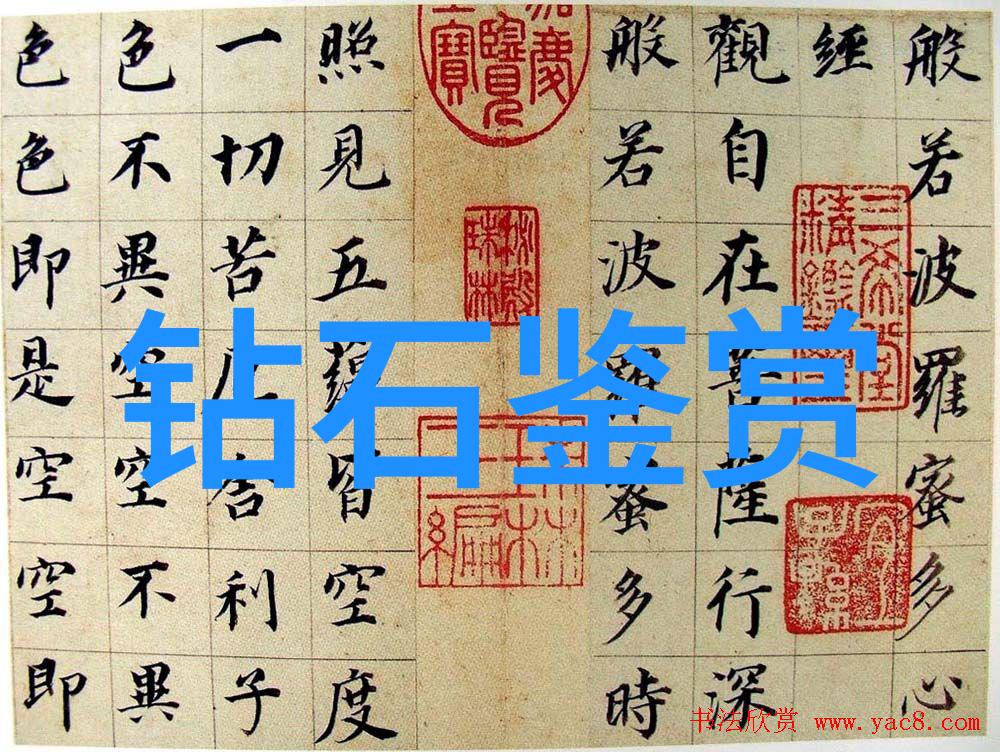 般若波羅蜜多心
經
觀自在菩薩行深
般若波羅蜜多時
照見五蘊皆空度
一切苦厄舍利子
色不異空空不異
色色即是空空即
钻石鉴赏
三希堂精鑑璽
秘殿珠林
书法欣赏 www.yac8.com